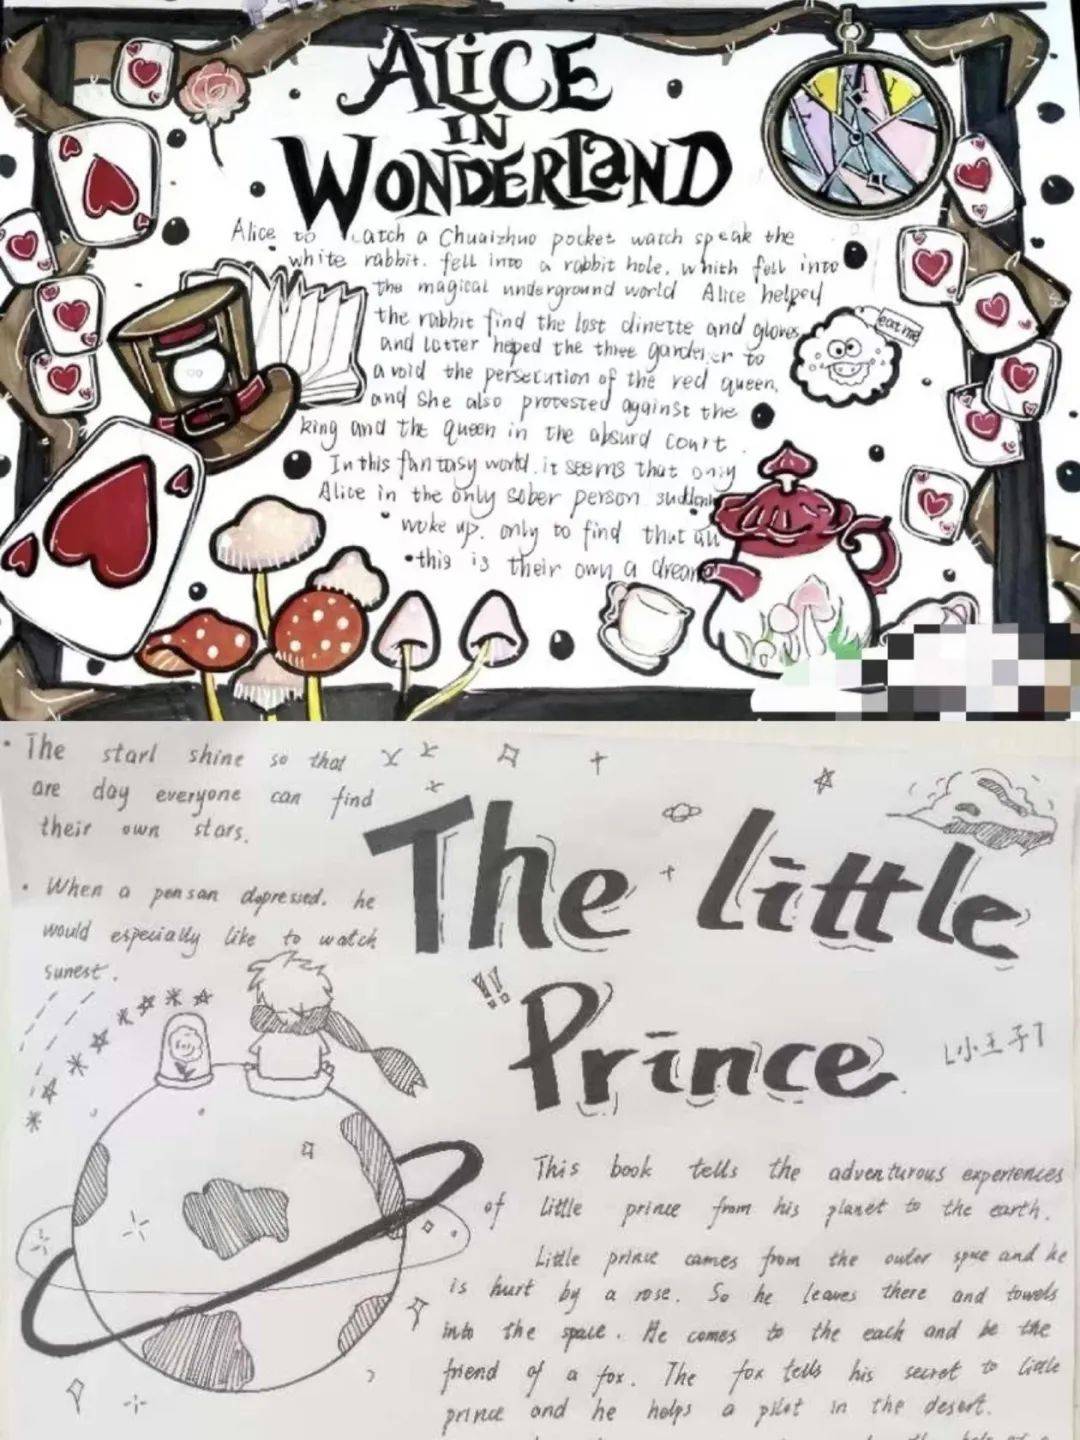 ALiCE
IN
WONDERLaND
Alice to catch a Chuaizhuo pocket watch speak the
white rabbit. fell into a rabbit hole. which fell into
the magical underground world Alice helped
the rabbit find the lost dinette and gloves
and latter heped the three gardener to
avoid the persecution of the red queen.
and she also protested against the
king and the queen in the absurd court.
In this fantasy world. it seems that only
Alice in the only sober person suddenly
woke up. only to find that all
this is their own a dream
eat me
The starl shine so that
are day everyone can find
their own stars.
When a pensan depressed. he
would especially like to watch
sunest.
The little
!!
Prince
小王子
This book tells the adventurous experiences
of little prince from his planet to the earth.
Little prince cames from the outer spue and he
is hurt by a rose. So he leaves there and towels
into the space. He comes to the each and be the
friend of a fox. The fox tells his secret to little
prince and he helps a pilot in the desert.